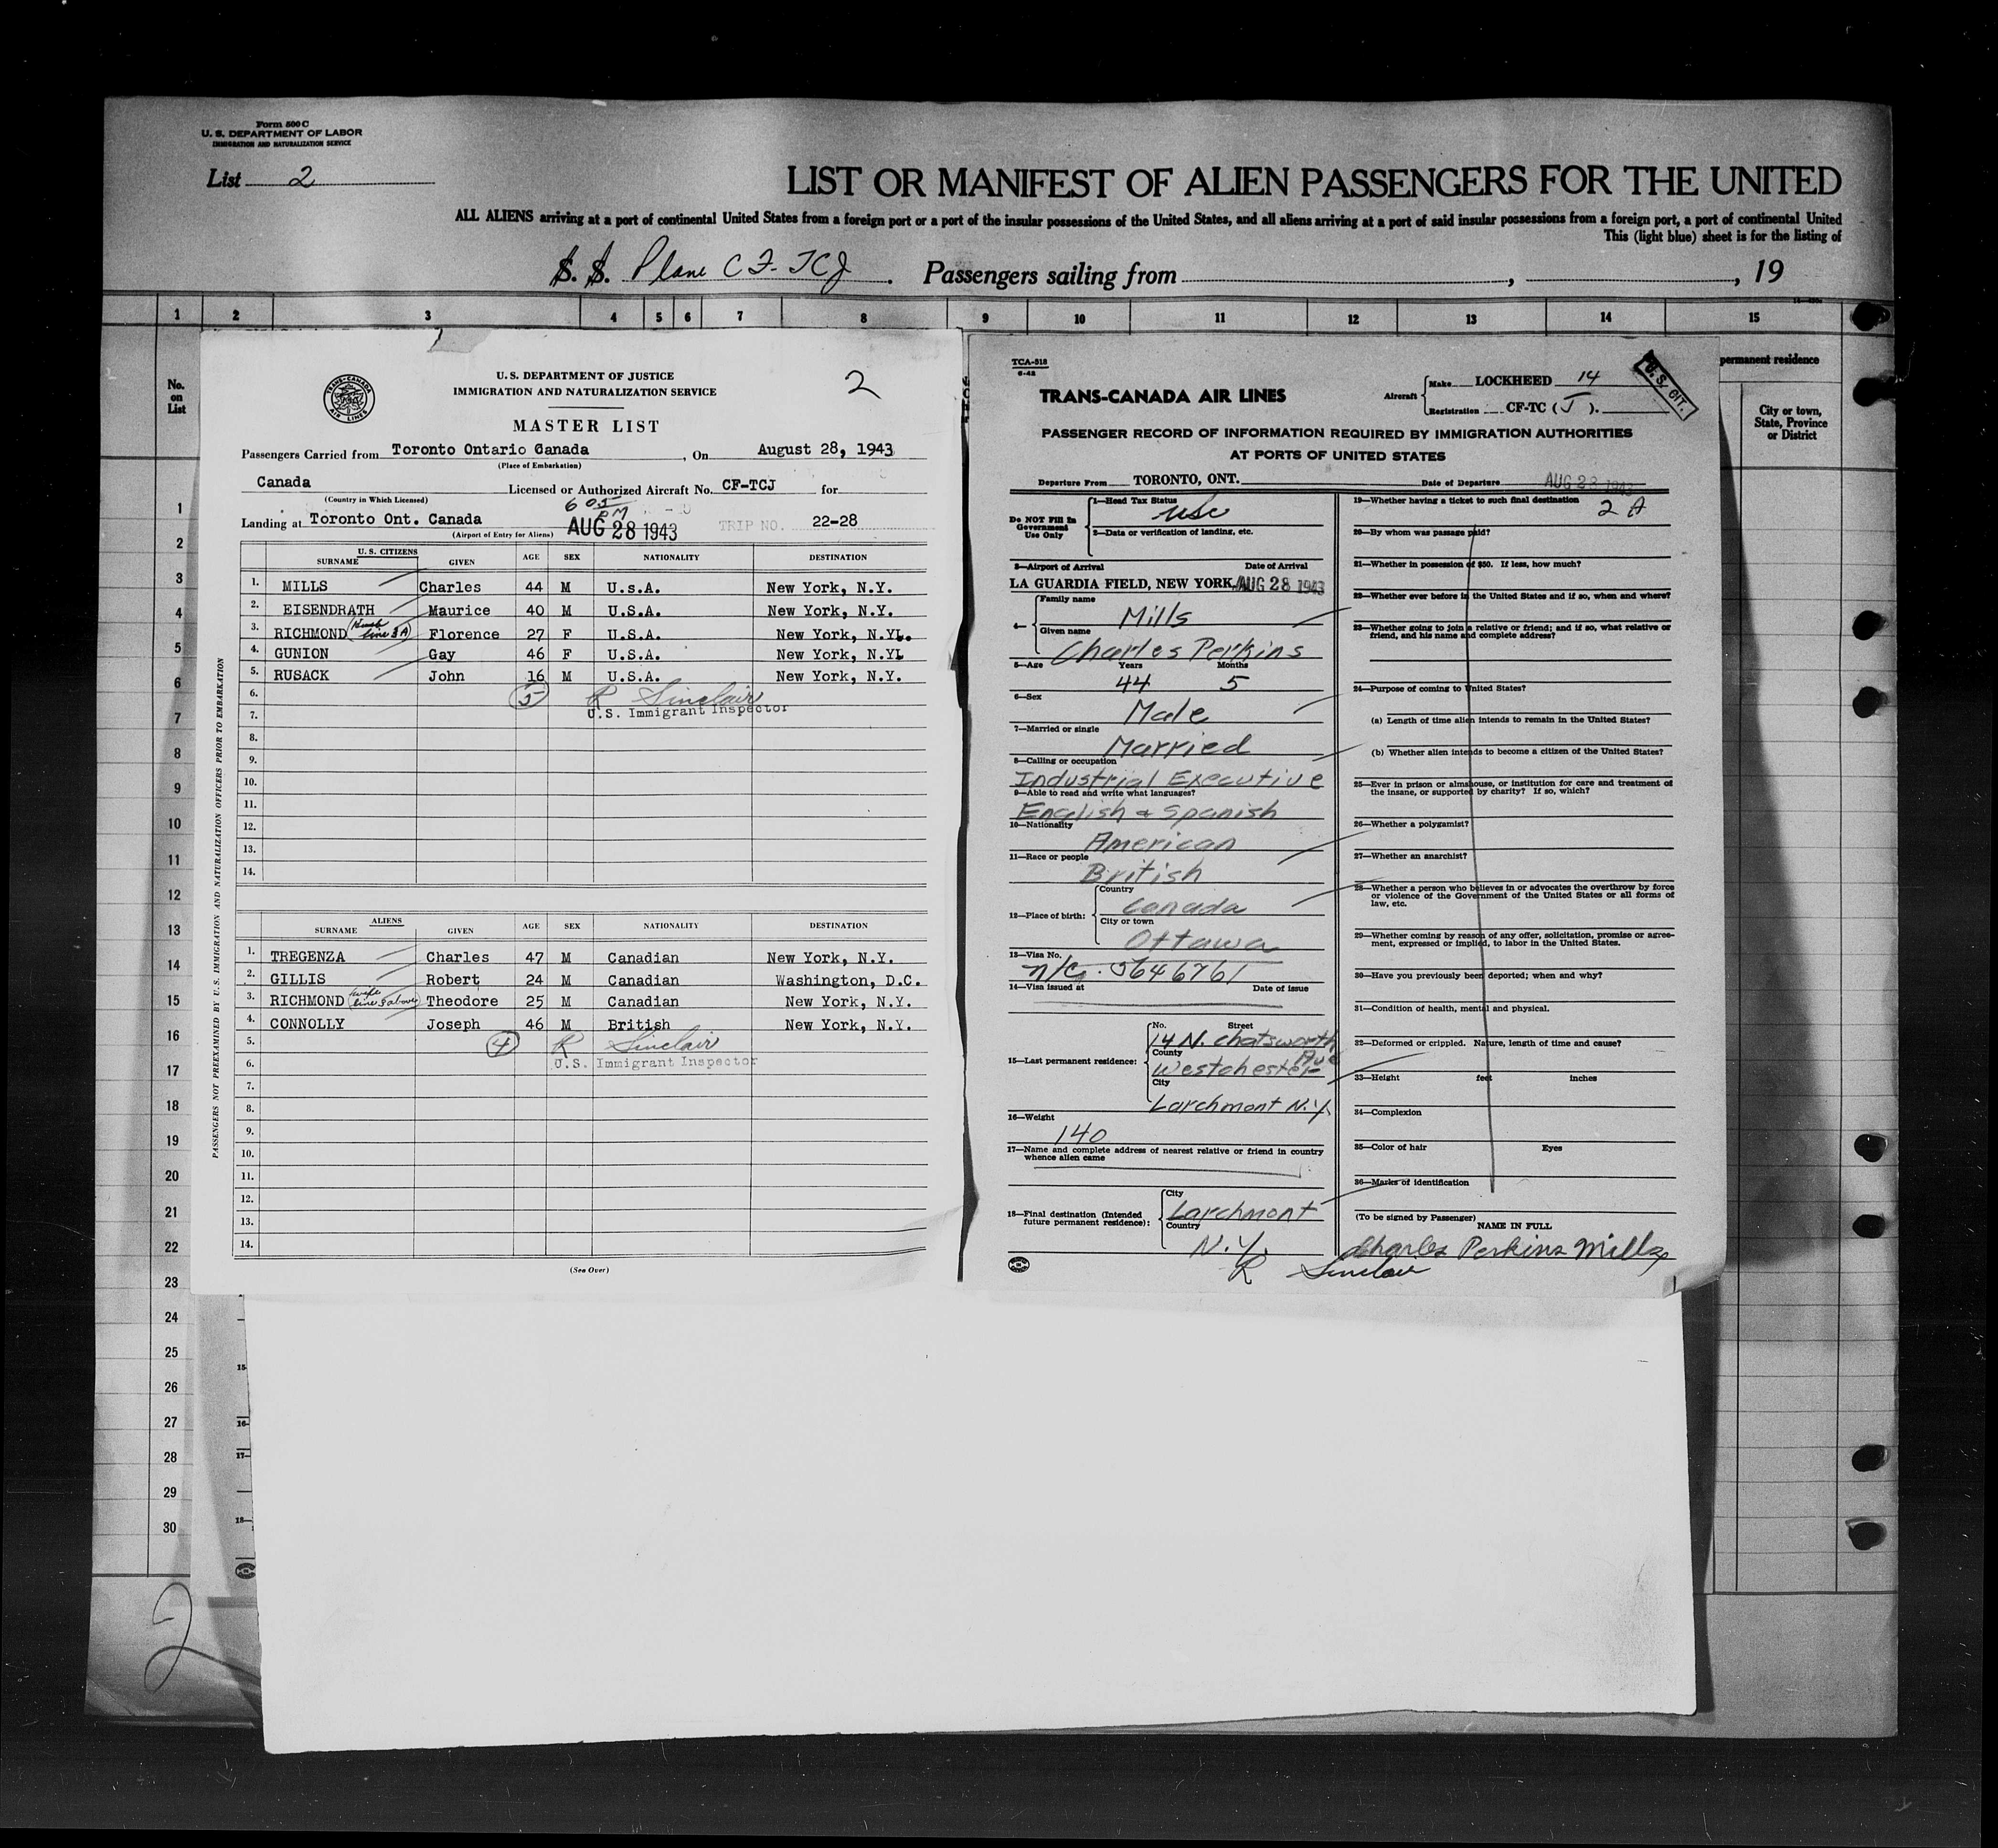 Form 500 C
U. S. DEPARTMENT OF LABOR
IMMIGRATION AND NATURALIZATION SERVICE
List 2
LIST OR MANIFEST OF ALIEN PASSENGERS FOR THE UNITED
ALL ALIENS arriving at a port of continental United States from a foreign port or a port of the insular possessions of the United States, and all aliens arriving at a port of said insular possessions from a foreign port, a port of continental United
This (light blue) sheet is for the listing of
S. S. Plane CF-TCJ. Passengers sailing from , , 19
1 2 3 4 5 6 7 8 9 10 11 12 13 14 15
No. on List
permanent residence
City or town, State, Province or District
1
2
3
4
5
6
7
8
9
10
11
12
13
14
15
16
17
18
19
20
21
22
23
24
25
26
27
28
29
30
15-
16-
17-
18-
2
TRANS-CANADA AIR LINES
U. S. DEPARTMENT OF JUSTICE
IMMIGRATION AND NATURALIZATION SERVICE
2
MASTER LIST
Passengers Carried from Toronto Ontario Canada, On August 28, 1943
(Place of Embarkation)
Canada Licensed or Authorized Aircraft No. CF-TCJ for
(Country in Which Licensed)
6 05 PM
Landing at Toronto Ont. Canada AUG 28 1943 TRIP NO. 22-28
(Airport of Entry for Aliens)
U. S. CITIZENS
SURNAME GIVEN AGE SEX NATIONALITY DESTINATION
1. MILLS Charles 44 M U.s.A. New York, N.Y.
2. EISENDRATH Maurice 40 M U.S.A. New York, N.Y.
3. RICHMOND (Husb line 3 A) Florence 27 F U.S.A. New York, N.YL.
4. GUNION Gay 46 F U.S.A. New York, N.YL
5. RUSACK John 16 M U.S.A. New York, N.Y.
6. 5 R Sinclair
7. U.S. Immigrant Inspector
8.
9.
10.
11.
12.
13.
14.
ALIENS
SURNAME GIVEN AGE SEX NATIONALITY DESTINATION
1. TREGENZA Charles 47 M Canadian New York, N.Y.
2. GILLIS Robert 24 M Canadian Washington, D.C.
3. RICHMOND (wife line 3 above) Theodore 25 M Canadian New York, N.Y.
4. CONNOLLY Joseph 46 M British New York, N.Y.
5. 4 R Sinclair
6. U.S. Immigrant Inspector
7.
8.
9.
10.
11.
12.
13.
14.
(See Over)
PASSENGERS NOT PREEXAMINED BY U. S. IMMIGRATION AND NATURALIZATION OFFICERS PRIOR TO EMBARKATION
TCA-518
6-42
TRANS-CANADA AIR LINES
Aircraft Make LOCKHEED 14
Registration CF-TC (J).
U. S. CIT.
PASSENGER RECORD OF INFORMATION REQUIRED BY IMMIGRATION AUTHORITIES
AT PORTS OF UNITED STATES
Departure From TORONTO, ONT. Date of Departure AUG 28 1943
Do NOT Fill In Government Use Only
1—Head Tax Status
usc
2—Data or verification of landing, etc.
3—Airport of Arrival Date of Arrival
LA GUARDIA FIELD, NEW YORK, AUG 28 1943
4— Family name
Mills
Given name
Charles Perkins
5—Age Years Months
44 5
6—Sex
Male
7—Married or single
Married
8—Calling or occupation
Industrial Executive
9—Able to read and write what languages?
English & Spanish
10—Nationality
American
11—Race or people
British
12—Place of birth: Country
Canada
City or town
Ottawa
13—Visa No.
n/c. 5646761
14—Visa issued at Date of issue
15—Last permanent residence: No. Street
14 N. Chatsworth Ave
County
Westchester
City
Larchmont N.Y.
16—Weight
140
17—Name and complete address of nearest relative or friend in country whence alien came
18—Final destination (Intended future permanent residence): City
Larchmont
Country
N.Y.
19—Whether having a ticket to such final destination
2 A
20—By whom was passage paid?
21—Whether in possession of $50. If less, how much?
22—Whether ever before in the United States and if so, when and where?
23—Whether going to join a relative or friend; and if so, what relative or
friend, and his name and complete address?
24—Purpose of coming to United States?
(a) Length of time alien intends to remain in the United States?
(b) Whether alien intends to become a citizen of the United States?
25—Ever in prison or almshouse, or institution for care and treatment of
the insane, or supported by charity? If so, which?
26—Whether a polygamist?
27—Whether an anarchist?
28—Whether a person who believes in or advocates the overthrow by force
or violence of the Government of the United States or all forms of
law, etc.
29—Whether coming by reason of any offer, solicitation, promise or agree-
ment, expressed or implied, to labor in the United States.
30—Have you previously been deported; when and why?
31—Condition of health, mental and physical.
32—Deformed or crippled. Nature, length of time and cause?
33—Height feet inches
34—Complexion
35—Color of hair Eyes
36—Marks of identification
(To be signed by Passenger)
NAME IN FULL
Charles Perkins Mills
R Sinclair